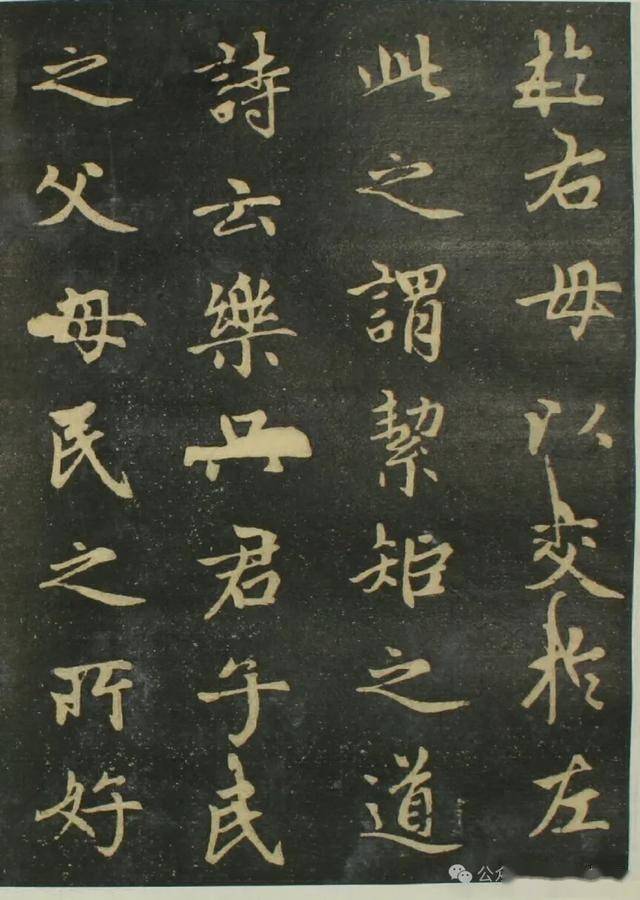 於右毋以交於左
此之謂絜矩之道
詩云樂只君子民
之父母民之所好
公众